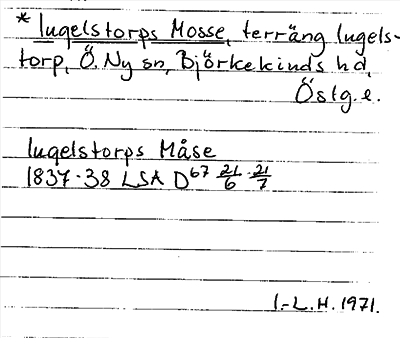 * Iugelstorps Mosse, terräng Iugels-
torp, Ö. Ny sn, Björkekinds hd,
Östg.e.
Iugelstorps Måse
1837-38 LSA D67 21/6 - 21/7
I.-L.H. 1971.